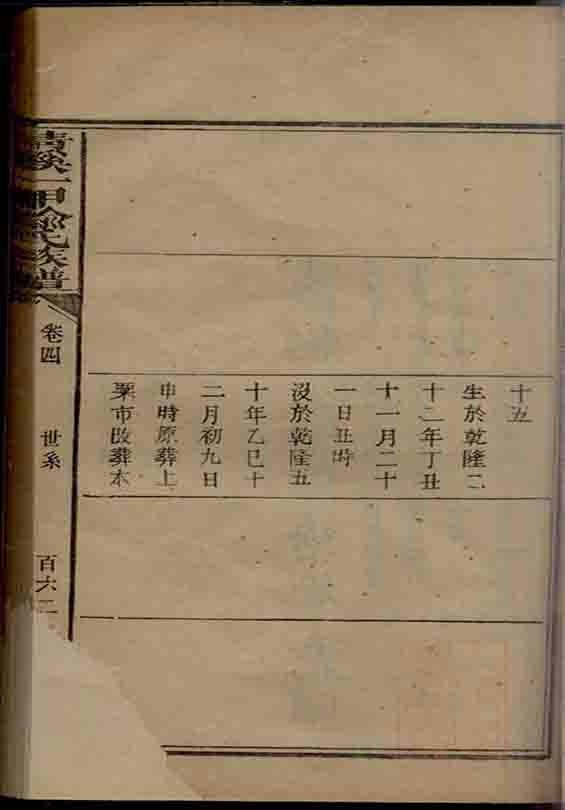 十五
生於乾隆二
十二年丁丑
十一月二十
一日丑時
沒於乾隆五
十年乙巳十
二月初九日
申時原葬上
栗市改葬本
氏族譜
卷四
世系
百六二